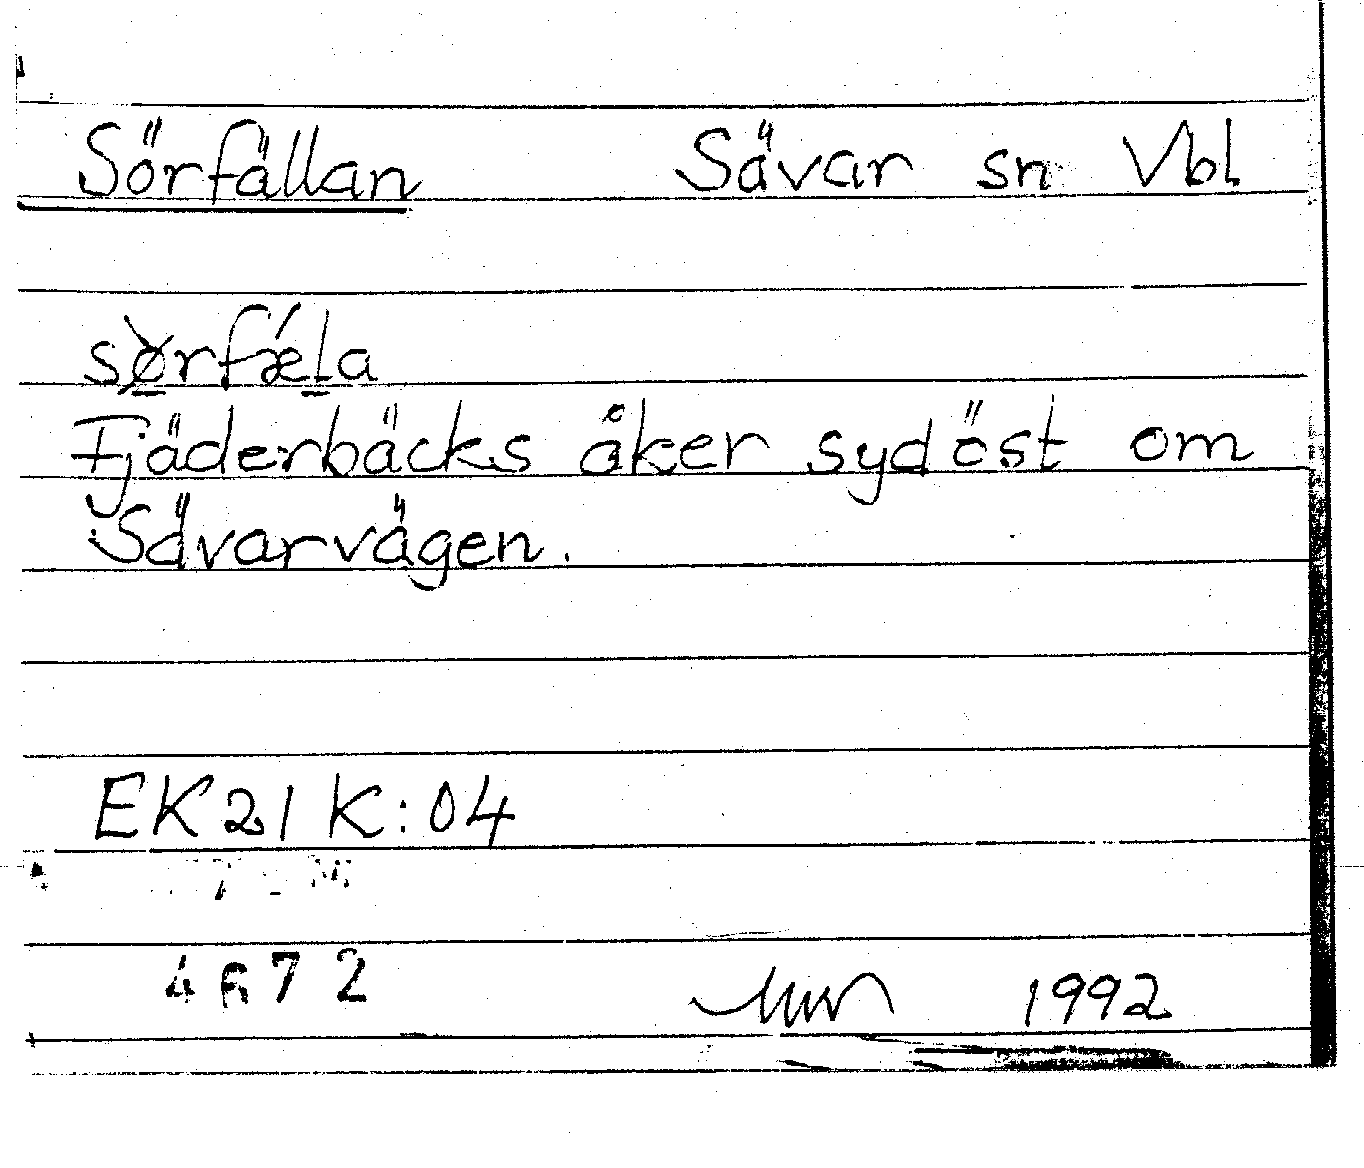 Sörfällan Sävar sn Vbl
sø̱̀rfǽḻa
Fjäderbäcks åker sydöst om
Sävarvägen.
EK 21 K:04
4672 1992